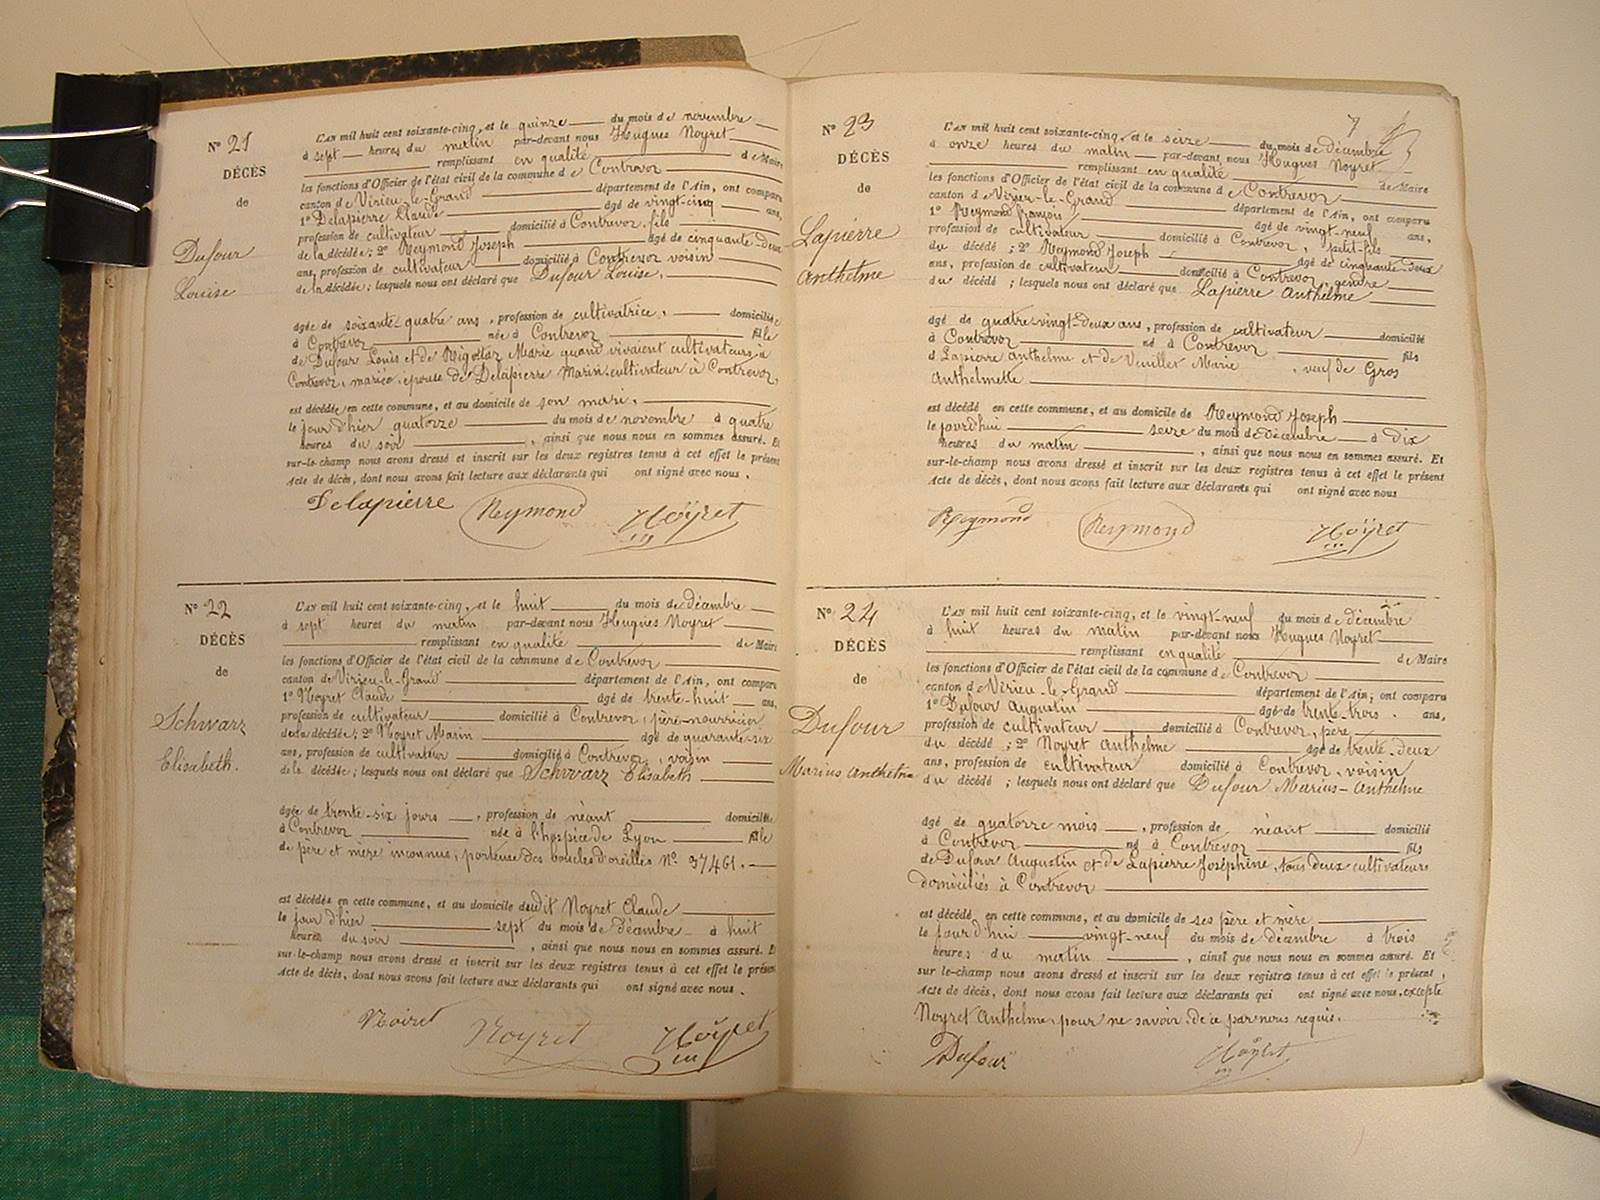 N° 21
DÉCÈS
de
Dufour
Louise
L'AN mil huit cent soixante-cinq, et le quinze du mois de novembre
à sept heures du matin par-devant nous Hugues Noyret
remplissant en qualité de Maire
les fonctions d'Officier de l'état civil de la commune de Contrevoz
canton de Virieu-le-Grand département de l'Ain, ont comparu
1° Delapierre Claude âgé de vingt-cinq ans,
profession de cultivateur domicilié à Contrevoz, fils
de la décédée; 2° Reymond Joseph âgé de cinquante-deux
ans, profession de cultivateur domicilié à Contrevoz voisin
de la décédée; lesquels nous ont déclaré que Dufour Louise,
âgée de soixante-quatre ans, profession de cultivatrice, domiciliée
à Contrevoz née à Contrevoz fille
de Dufour Louis et de Rigollaz Marie quand vivaient cultivateurs à
Contrevoz, mariée, épouse de Delapierre Marin cultivateur à Contrevoz,
est décédée en cette commune, et au domicile de son mari,
le jour d'hier quatorze du mois de novembre à quatre
heures du soir, ainsi que nous nous en sommes assuré. Et
sur-le-champ nous avons dressé et inscrit sur les deux registres tenus à cet effet le présent
Acte de décès, dont nous avons fait lecture aux déclarants qui ont signé avec nous.
Delapierre Reymond Hoÿret
N° 22
DÉCÈS
de
Schwarz
Elisabeth.
L'AN mil huit cent soixante-cinq, et le huit du mois de décembre
à sept heures du matin par-devant nous Hugues Noyret
remplissant en qualité de Maire
les fonctions d'Officier de l'état civil de la commune de Contrevoz
canton de Virieu-le-Grand département de l'Ain, ont comparu
1° Noyret Claude âgé de trente-huit ans,
profession de cultivateur domicilié à Contrevoz, père-nourricier
de la décédée; 2° Noyret Marin âgé de quarante-six
ans, profession de cultivateur domicilié à Contrevoz, voisin
de la décédée; lesquels nous ont déclaré que Schwarz Elisabeth
âgée de trente-six jours, profession de néant domiciliée
à Contrevoz née à l'hospice de Lyon fille
de père et mère inconnus, porteuse des boucles d'oreilles N° 37461.
est décédée en cette commune, et au domicile dudit Noyret Claude
le jour d'hier sept du mois de décembre à huit
heures du soir, ainsi que nous nous en sommes assuré. Et
sur-le-champ nous avons dressé et inscrit sur les deux registres tenus à cet effet le présent
Acte de décès, dont nous avons fait lecture aux déclarants qui ont signé avec nous.
Noiret Noyret Hoÿret
7
N° 23
DÉCÈS
de
Lapierre
Anthelme
L'AN mil huit cent soixante-cinq, et le seize du mois de décembre
à onze heures du matin par-devant nous Hugues Noyret
remplissant en qualité de Maire
les fonctions d'Officier de l'état civil de la commune de Contrevoz
canton de Virieu-le-Grand département de l'Ain, ont comparu
1° Reymond françois âgé de vingt-neuf ans,
profession de cultivateur domicilié à Contrevoz, petit-fils
du décédé; 2° Reymond Joseph âgé de cinquante-deux
ans, profession de cultivateur domicilié à Contrevoz, gendre
du décédé; lesquels nous ont déclaré que Lapierre Anthelme
âgé de quatre-vingt-deux ans, profession de cultivateur domicilié
à Contrevoz né à Contrevoz fils
d Lapierre Anthelme et de Veuillet Marie, veuf de Gros
Anthelmette
est décédé en cette commune, et au domicile de Reymond Joseph
le jourd'hui seize du mois de Décembre à dix
heures du matin, ainsi que nous nous en sommes assuré. Et
sur-le-champ nous avons dressé et inscrit sur les deux registres tenus à cet effet le présent
Acte de décès, dont nous avons fait lecture aux déclarants qui ont signé avec nous
Reymond Reymond Hoÿret
N° 24
DÉCÈS
de
Dufour
Marius Anthelme
L'AN mil huit cent soixante-cinq, et le vingt-neuf du mois de décembre
à huit heures du matin par-devant nous Hugues Noyret
remplissant en qualité de Maire
les fonctions d'Officier de l'état civil de la commune de Contrevoz
canton de Virieu-le-Grand département de l'Ain, ont comparu
1° Dufour Augustin âgé de trente-trois ans,
profession de cultivateur domicilié à Contrevoz, père
du décédé; 2° Noyret Anthelme âgé de trente-deux
ans, profession de cultivateur domicilié à Contrevoz, voisin
du décédé; lesquels nous ont déclaré que Dufour Marius-Anthelme
âgé de quatorze mois, profession de néant domicilié
à Contrevoz né à Contrevoz fils
de Dufour Augustin et de Lapierre Joséphine, tous deux cultivateurs
domiciliés à Contrevoz
est décédé en cette commune, et au domicile de ses père et mère
le jourd'hui vingt-neuf du mois de décembre à trois
heures du matin, ainsi que nous nous en sommes assuré. Et
sur-le-champ nous avons dressé et inscrit sur les deux registres tenus à cet effet le présent
Acte de décès, dont nous avons fait lecture aux déclarants qui ont signé avec nous. excepté
Noyret Anthelme, pour ne savoir, de ce par nous requis.
Dufour Hoÿret